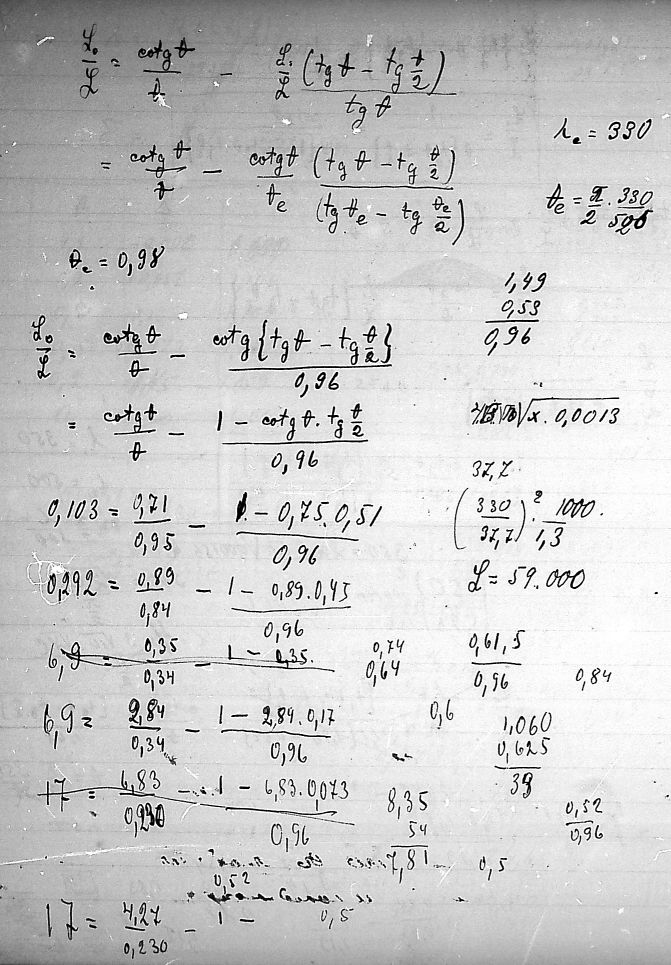 L₀/L = cotg θ/θ − L₀/L (tg θ − tg θ/2)/tg θ
λₑ = 330
= cotg θ/θ − cotg θ/θₑ (tg θ − tg θ/2)/(tg θₑ − tg θₑ/2)
θₑ = π/2 · 330/525
θₑ = 0,98
1,49
0,53
0,96
L₀/L = cotg θ/θ − cotg {tg θ − tg θ/2}/0,96
= cotg θ/θ − 1 − cotg θ · tg θ/2/0,96
√x. 0,0013
37,7
0,103 = 0,71/0,95 − 1 − 0,75.0,51/0,96
(330/37,7)² · 1000/1,3
0,292 = 0,89/0,84 − 1 − 0,89.0,45/0,96
L = 59.000
6,9 = 0,35/0,34 − 1 − 0,35.
0,74
0,64
0,61,5/0,96
0,84
6,9 = 2,84/0,34 − 1 − 2,84.0,17/0,96
0,6
1,060
0,625
39
17 = 6,83/0,230 − 1 − 6,83.0,073/0,96
8,35
54
7,81
0,52/0,96
0,5
0,52
17 = 4,27/0,230 − 1 −
0,5